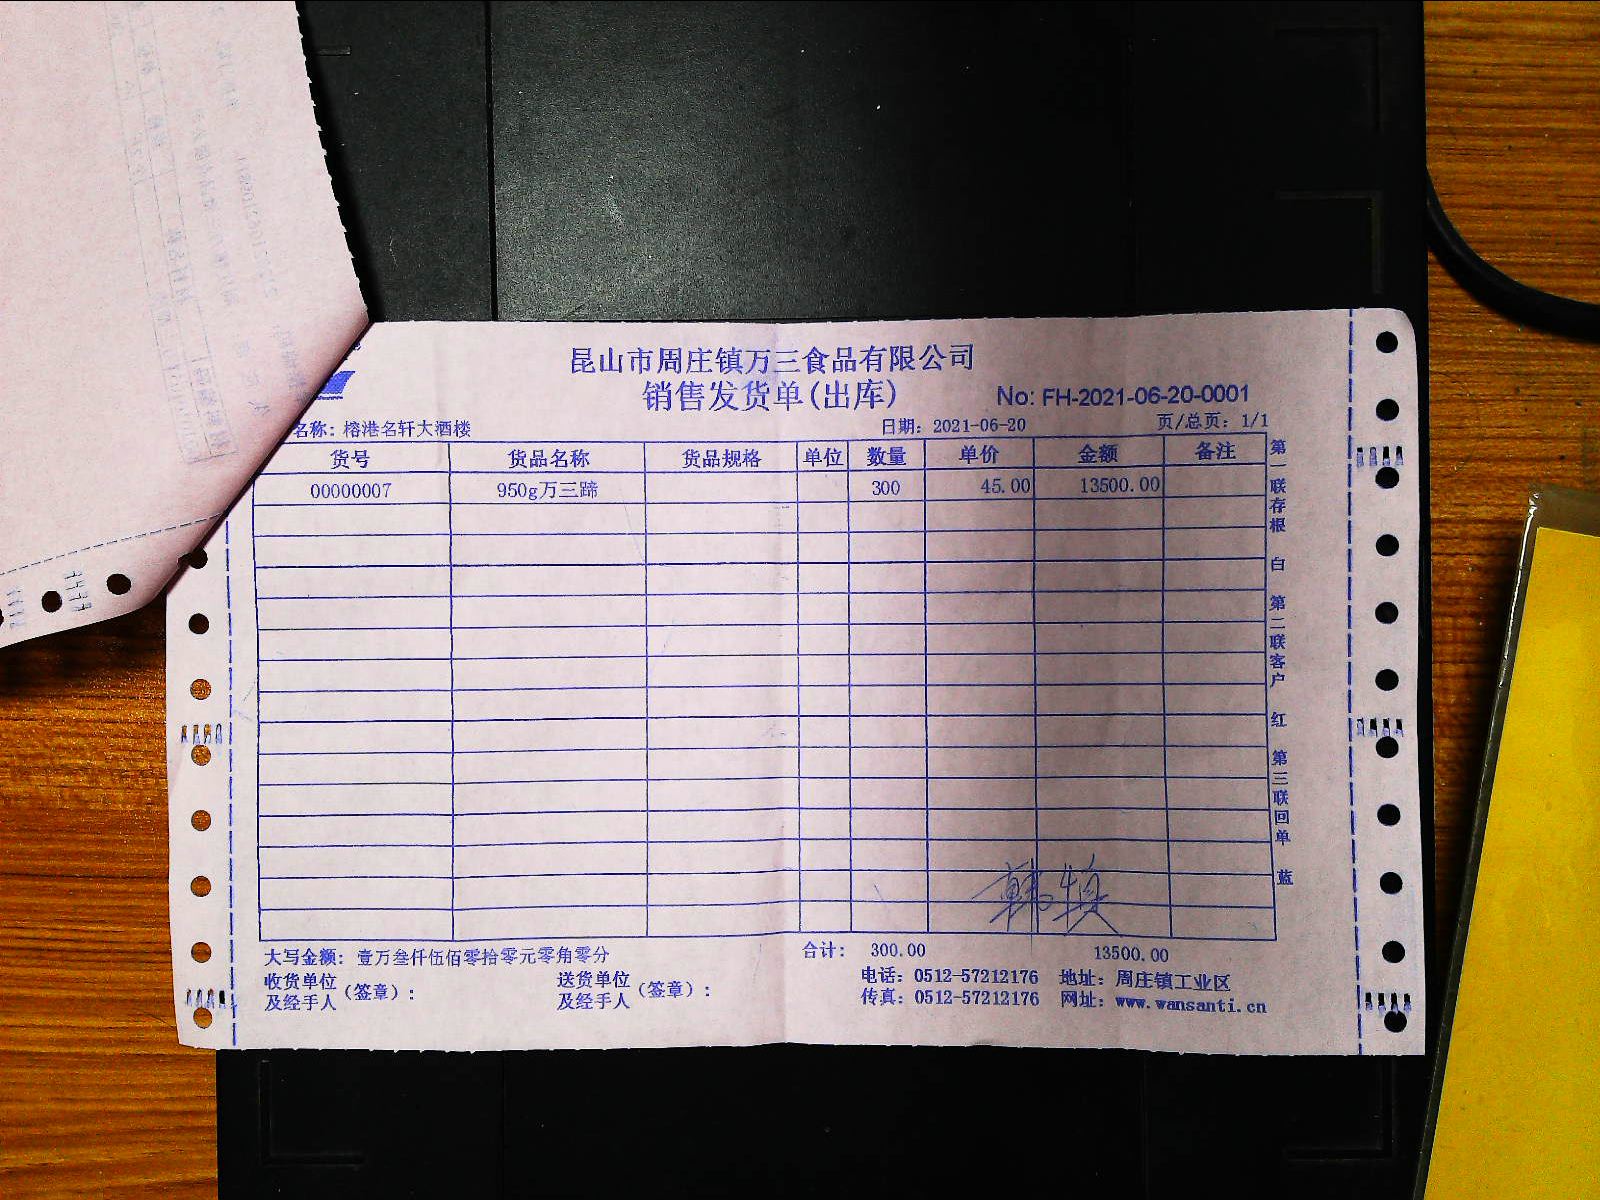 昆山市周庄镇万三食品有限公司
销售发货单(出库)
No: FH-2021-06-20-0001
名称: 榕港名轩大酒楼 日期: 2021-06-20 页/总页: 1/1
货号 货品名称 货品规格 单位 数量 单价 金额 备注
00000007 950g万三蹄 300 45.00 13500.00
第一联存根 白 第二联客户 红 第三联回单 蓝
大写金额: 壹万叁仟伍佰零拾零元零角零分 合计: 300.00 13500.00
收货单位及经手人(签章): 送货单位及经手人(签章):
电话: 0512-57212176 地址: 周庄镇工业区
传真: 0512-57212176 网址: www.wansanti.cn